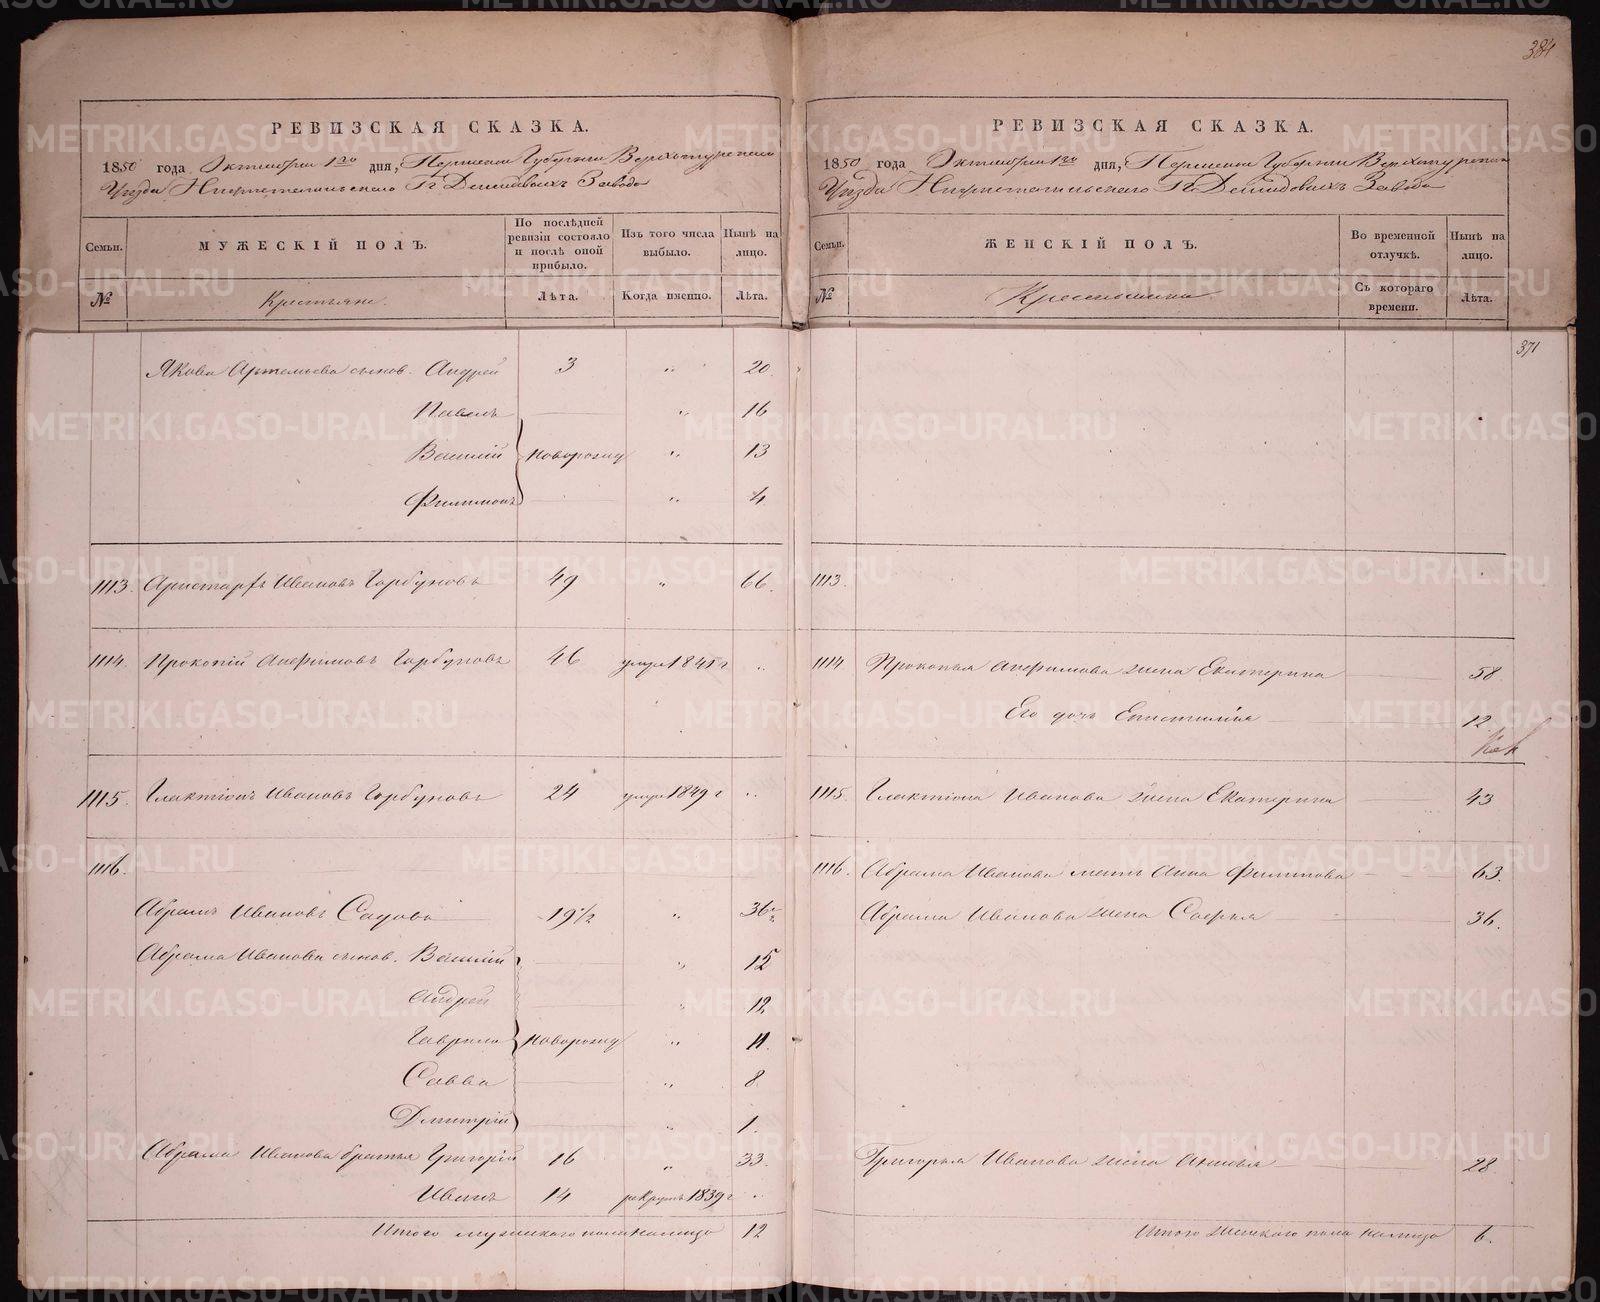 384
РЕВИЗСКАЯ СКАЗКА.
1850 года Октября 1го дня, Пермской Губернии Верхотурскаго
Уезда Нижнетагильскаго Гг Демидовыхъ Завода
Семьи.
МУЖЕСКІЙ ПОЛЪ.
По послѣдней ревизіи состояло и послѣ оной прибыло.
Изъ того числа выбыло.
Нынѣ на лицо.
№
Крестьяне.
Лѣта.
Когда именно.
Лѣта.
Якова Артемьева сынов. Андрей 3 " 20.
Павелъ " 16
Василій новорожд " 13
Филимонъ " 4
1113. Аристархъ Ивановъ Горбуновъ 49 " 66.
1114. Прокопій Анфимовъ Горбуновъ 46 умре 1845 г "
1115. Галактіонъ Ивановъ Горбуновъ 24 умре 1849 г "
1116.
Абрамъ Ивановъ Садовъ 19 1/2 " 36 1/2
Абрама Иванова сынов. Василій " 15
Андрей " 12
Гаврило новорожд " 11.
Савва " 8.
Дмитрій " 1.
Абрама Иванова братья Григорій 16 " 33.
Иванъ 14 рекрутъ 1839 г "
Итого мужескаго пола налицо 12
РЕВИЗСКАЯ СКАЗКА.
1850 года Октября 1го дня, Пермской Губернии Верхотурскаго
Уезда Нижнетагильскаго Гг Демидовыхъ Завода
Семьи.
ЖЕНСКІЙ ПОЛЪ.
Во временной отлучкѣ.
Нынѣ на лицо.
№
Съ котораго времени.
Лѣта.
371
1113.
1114. Прокопья Анфимова жена Екатерина 58.
Его дочь 12.
1115. Галактіона Иванова жена Екатерина 43
1116. Абрама Иванова мать Анна Филипова 63.
Абрама Иванова жена Софья 36.
Григорья Иванова жена 28.
Итого женскаго пола налицо 6.
METRIKI.GASO-URAL.RU